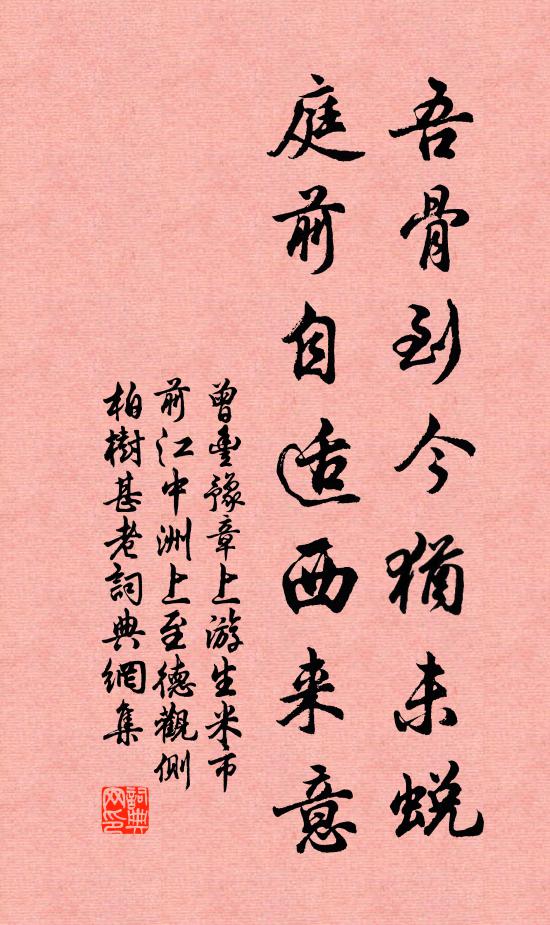 吾骨到今猶未蜕
庭前自适西来意
曾豐豫章上游生米市
前江中洲上至德觀側
柏樹甚老詞典網集
詞典网印